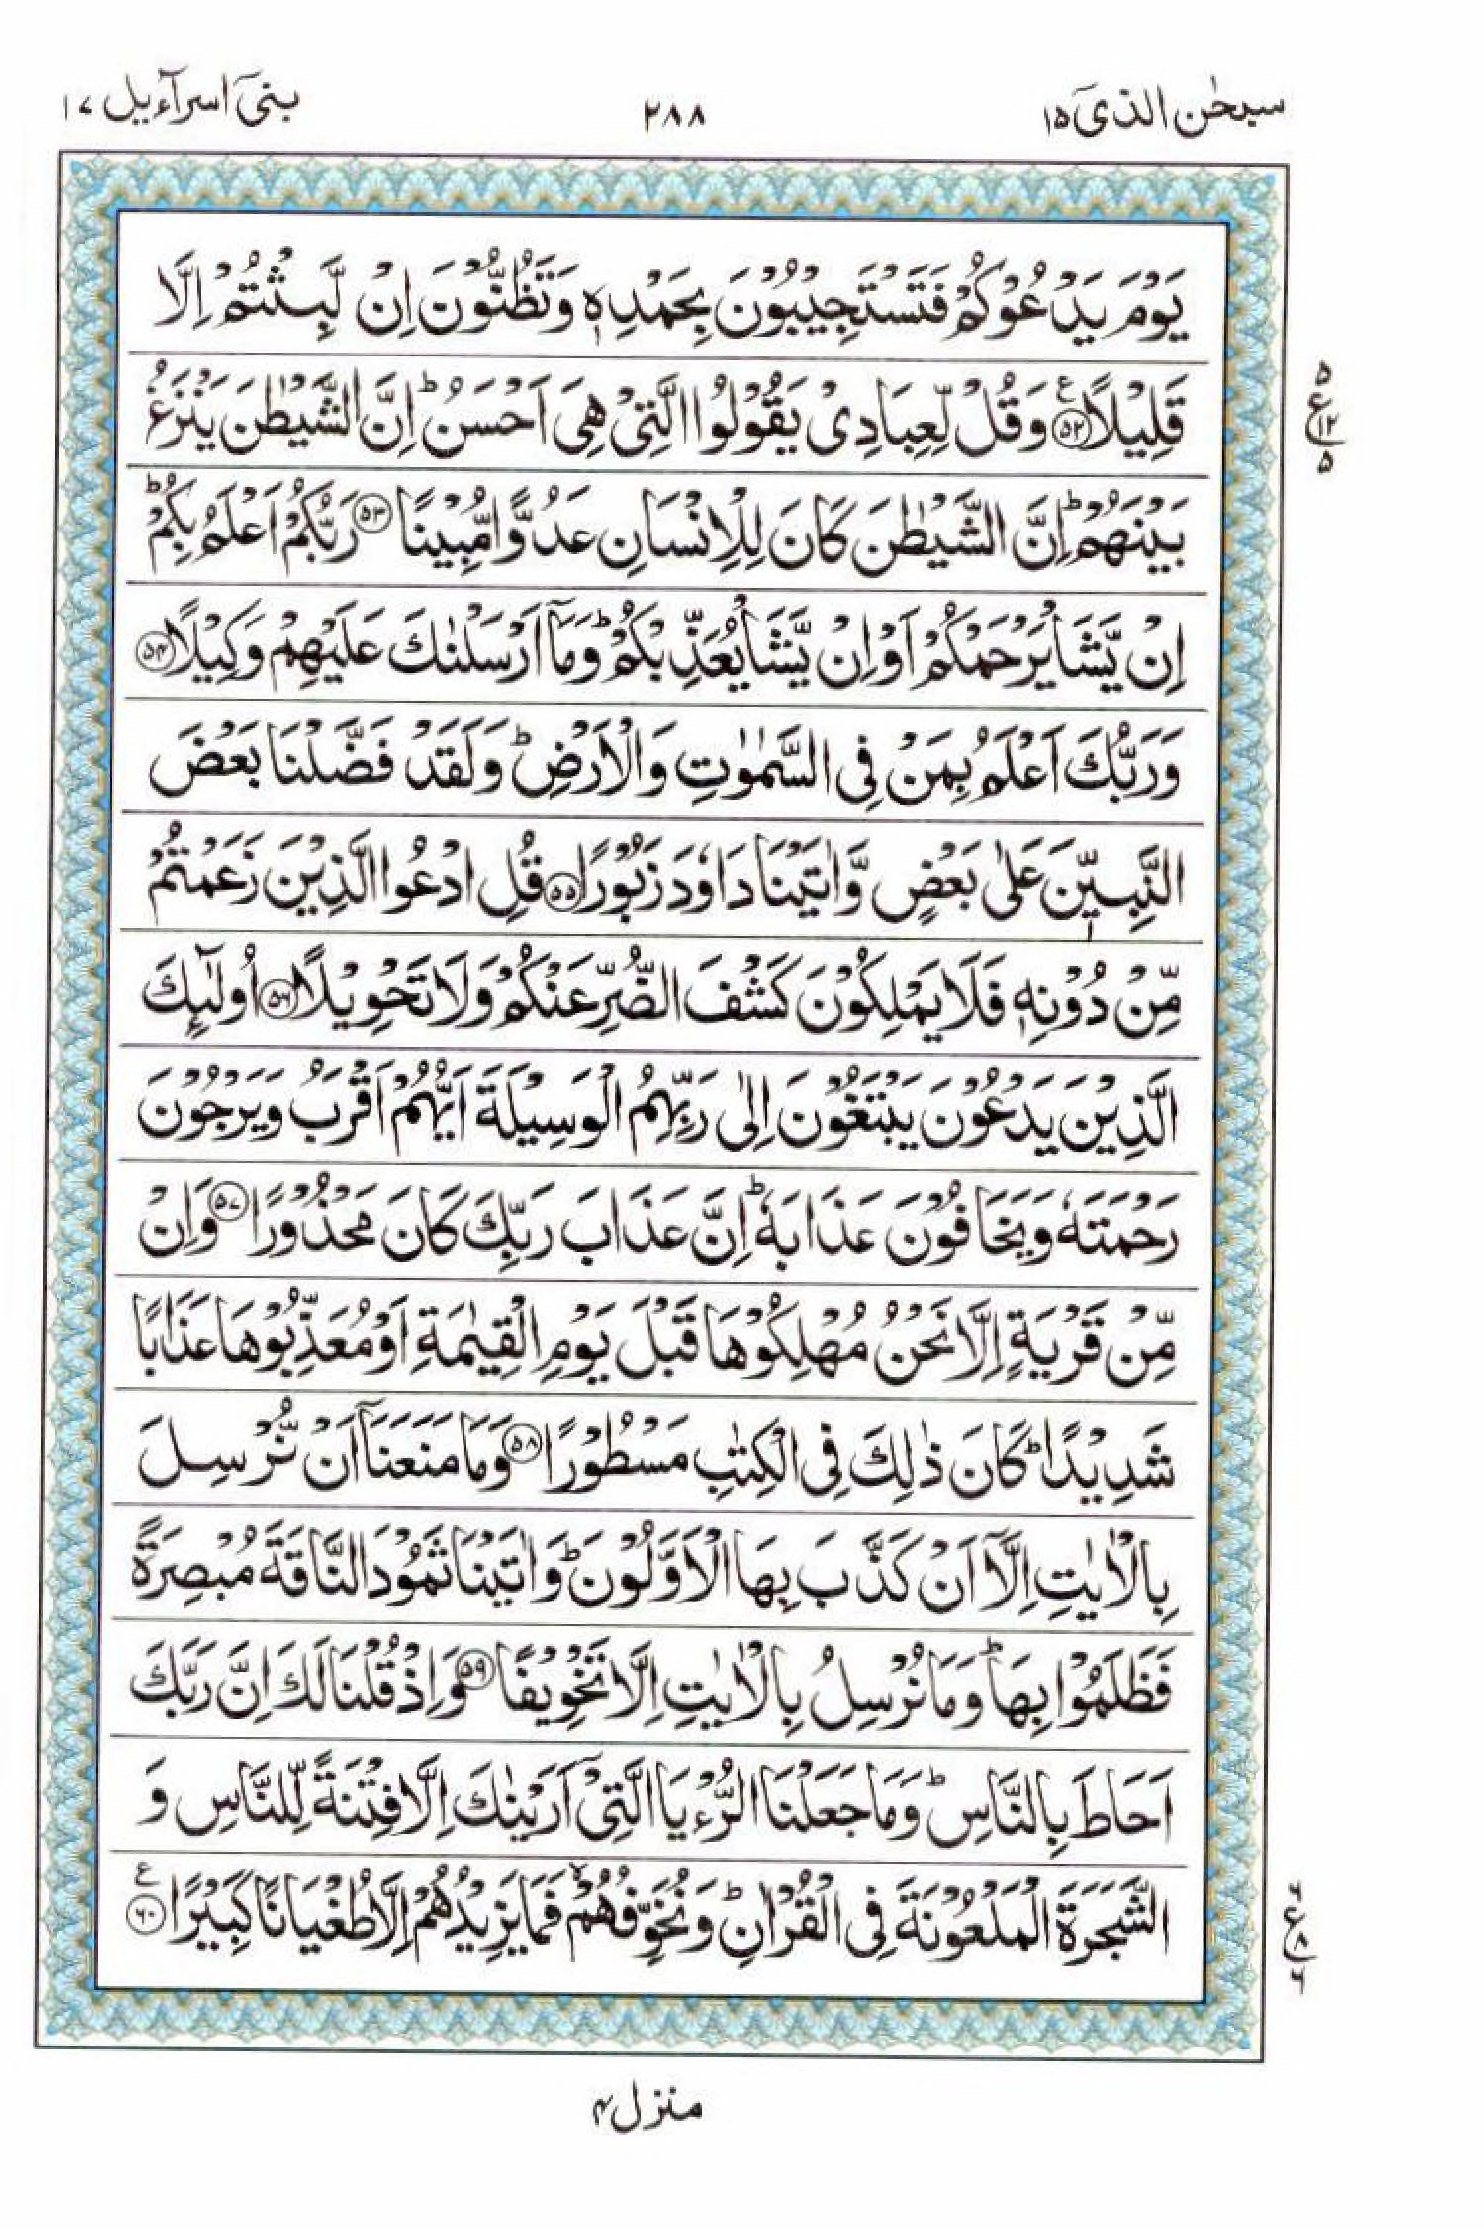 سبحٰن الذیٓ ۱۵
۲۸۸
بنیٓ اسرآءیل ۱۷
یَوْمَ یَدْعُوْكُمْ فَتَسْتَجِیْبُوْنَ بِحَمْدِهٖ وَتَظُنُّوْنَ اِنْ لَّبِثْتُمْ اِلَّا
قَلِیْلًا ﴿۵۲﴾ ع وَقُلْ لِّعِبَادِیْ یَقُوْلُوا الَّتِیْ هِیَ اَحْسَنُ ؕ اِنَّ الشَّیْطٰنَ یَنْزَغُ
۵
ع
۱۲
۵
بَیْنَهُمْ ؕ اِنَّ الشَّیْطٰنَ كَانَ لِلْاِنْسَانِ عَدُوًّا مُّبِیْنًا ﴿۵۳﴾ رَبُّكُمْ اَعْلَمُ بِكُمْ ؕ
اِنْ یَّشَاْ یَرْحَمْكُمْ اَوْ اِنْ یَّشَاْ یُعَذِّبْكُمْ ؕ وَمَاۤ اَرْسَلْنٰكَ عَلَیْهِمْ وَكِیْلًا ﴿۵۴﴾
وَرَبُّكَ اَعْلَمُ بِمَنْ فِی السَّمٰوٰتِ وَالْاَرْضِ ؕ وَلَقَدْ فَضَّلْنَا بَعْضَ
النَّبِیّٖنَ عَلٰی بَعْضٍ وَّاٰتَیْنَا دَاوٗدَ زَبُوْرًا ﴿۵۵﴾ قُلِ ادْعُوا الَّذِیْنَ زَعَمْتُمْ
مِّنْ دُوْنِهٖ فَلَا یَمْلِكُوْنَ كَشْفَ الضُّرِّ عَنْكُمْ وَلَا تَحْوِیْلًا ﴿۵۶﴾ اُولٰٓىِٕكَ
الَّذِیْنَ یَدْعُوْنَ یَبْتَغُوْنَ اِلٰی رَبِّهِمُ الْوَسِیْلَةَ اَیُّهُمْ اَقْرَبُ وَیَرْجُوْنَ
رَحْمَتَهٗ وَیَخَافُوْنَ عَذَابَهٗ ؕ اِنَّ عَذَابَ رَبِّكَ كَانَ مَحْذُوْرًا ﴿۵۷﴾ وَاِنْ
مِّنْ قَرْیَةٍ اِلَّا نَحْنُ مُهْلِكُوْهَا قَبْلَ یَوْمِ الْقِیٰمَةِ اَوْ مُعَذِّبُوْهَا عَذَابًا
شَدِیْدًا ؕ كَانَ ذٰلِكَ فِی الْكِتٰبِ مَسْطُوْرًا ﴿۵۸﴾ وَمَا مَنَعَنَاۤ اَنْ نُّرْسِلَ
بِالْاٰیٰتِ اِلَّاۤ اَنْ كَذَّبَ بِهَا الْاَوَّلُوْنَ ؕ وَاٰتَیْنَا ثَمُوْدَ النَّاقَةَ مُبْصِرَةً
فَظَلَمُوْا بِهَا ؕ وَمَا نُرْسِلُ بِالْاٰیٰتِ اِلَّا تَخْوِیْفًا ﴿۵۹﴾ وَاِذْ قُلْنَا لَكَ اِنَّ رَبَّكَ
اَحَاطَ بِالنَّاسِ ؕ وَمَا جَعَلْنَا الرُّءْیَا الَّتِیْۤ اَرَیْنٰكَ اِلَّا فِتْنَةً لِّلنَّاسِ وَ
الشَّجَرَةَ الْمَلْعُوْنَةَ فِی الْقُرْاٰنِ ؕ وَنُخَوِّفُهُمْ ۙ فَمَا یَزِیْدُهُمْ اِلَّا طُغْیَانًا كَبِیْرًا ﴿۶۰﴾ ع
۶
ع
۸
۶
منزل ۴